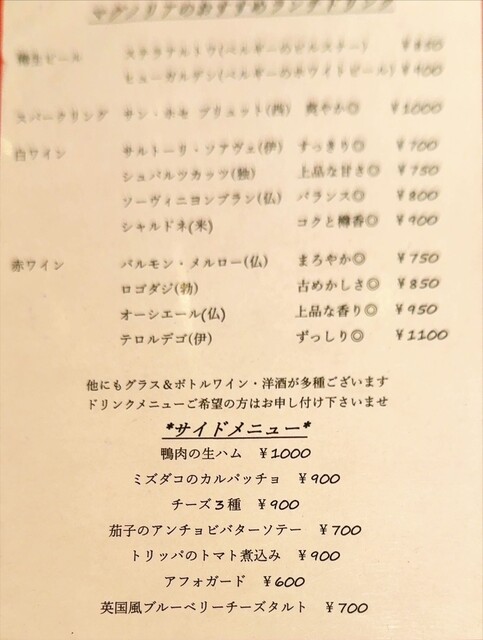 マグノリアのおすすめランチドリンク
樽生ビール ステラアルトワ(ベルギーのピルスナー) ￥850
ヒューガルデン(ベルギーのホワイトビール) ￥900
スパークリング サン・ホセ ブリュット(西) 爽やか◎ ￥1000
白ワイン サルトーリ・ソアヴェ(伊) すっきり◎ ￥700
シュバルツカッツ(独) 上品な甘さ◎ ￥750
ソーヴィニヨンブラン(仏) バランス◎ ￥800
シャルドネ(米) コクと樽香◎ ￥900
赤ワイン バルモン・メルロー(仏) まろやか◎ ￥750
ロゴダジ(勃) 古めかしさ◎ ￥850
オーシエール(仏) 上品な香り◎ ￥950
テロルデゴ(伊) ずっしり◎ ￥1100
他にもグラス＆ボトルワイン・洋酒が多種ございます
ドリンクメニューご希望の方はお申し付け下さいませ
*サイドメニュー*
鴨肉の生ハム ￥1000
ミズダコのカルパッチョ ￥900
チーズ３種 ￥900
茄子のアンチョビバターソテー ￥700
トリッパのトマト煮込み ￥900
アフォガード ￥600
英国風ブルーベリーチーズタルト ￥700